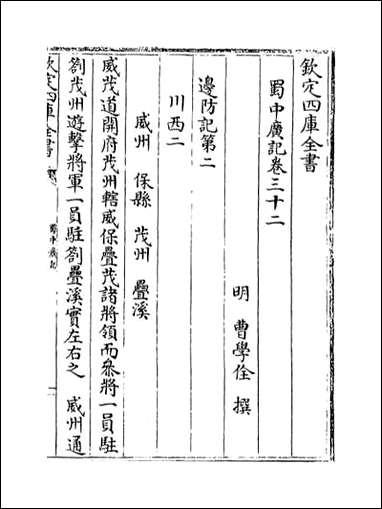 欽定四庫全書
蜀中廣記卷三十二
明 曹學佺 撰
邊防記第二
川西二
威州 保縣 茂州 疊溪
威茂道開府茂州轄威保疊茂諸將領而叅將一員駐
劄茂州遊擊將軍一員駐劄疊溪實左右之 威州通
欽定四庫全書
蜀中廣記